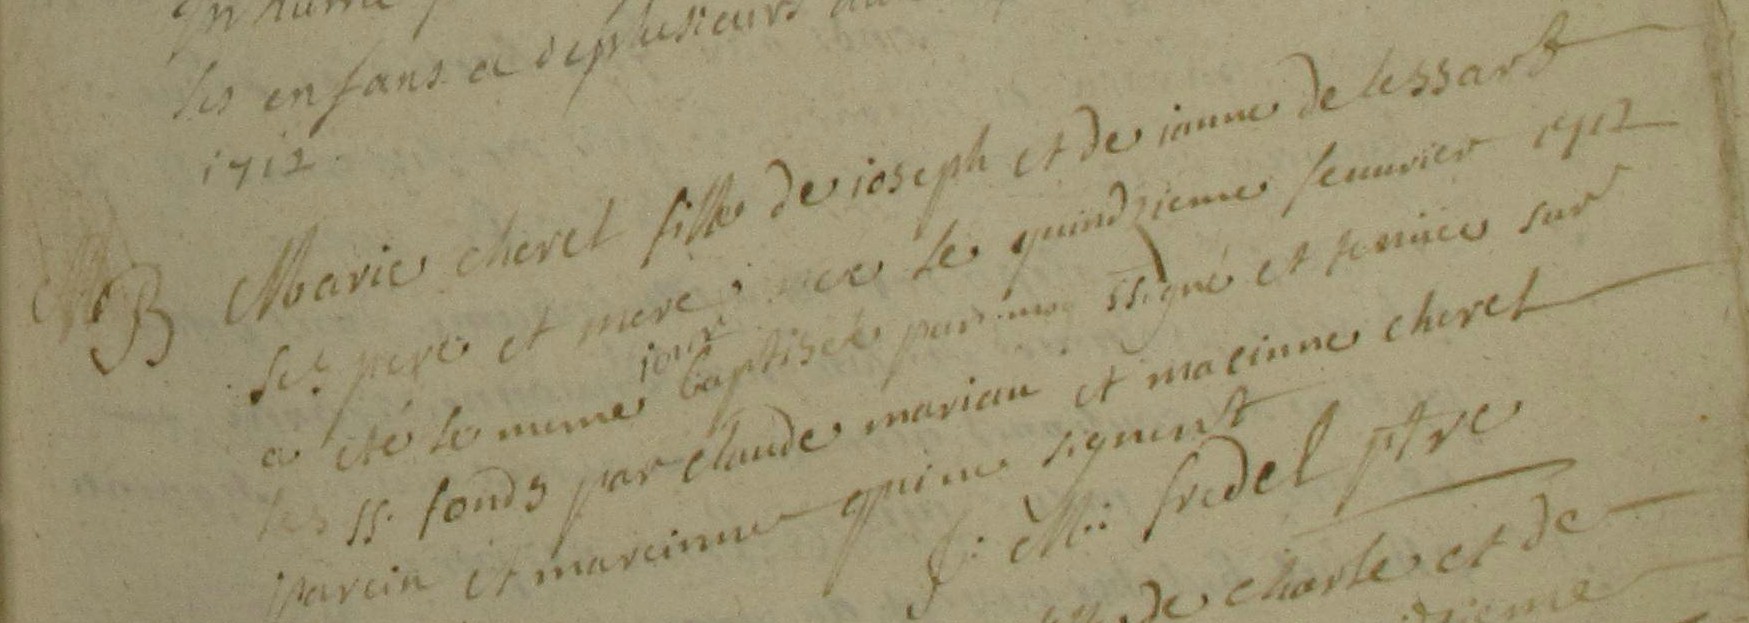 les enfans a deplusieurs
1712.
B Marie cheret fille de ioseph et de ianne de lessart
ses pere et mere, nee le quindzieme feuurier 1712
a eté le meme iour baptisée par moy ssigné et tenüe sur
les ss. fonds par claude marian et matinne cheret
parein et mareinne qui ne signent
J: M:: fredel ptre
de charle et de